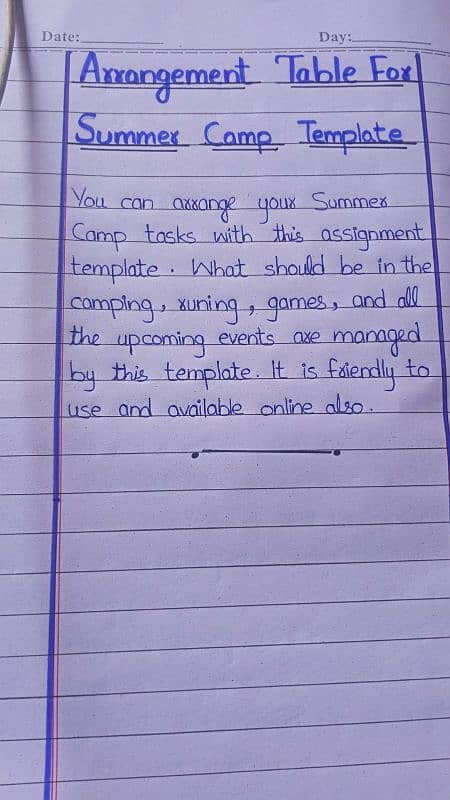 Date:
Day:
Arrangement Table For
Summer Camp Template
You can arrange your Summer
Camp tasks with this assignment
template. What should be in the
camping, runing, games, and all
the upcoming events are managed
by this template. It is friendly to
use and available online also.